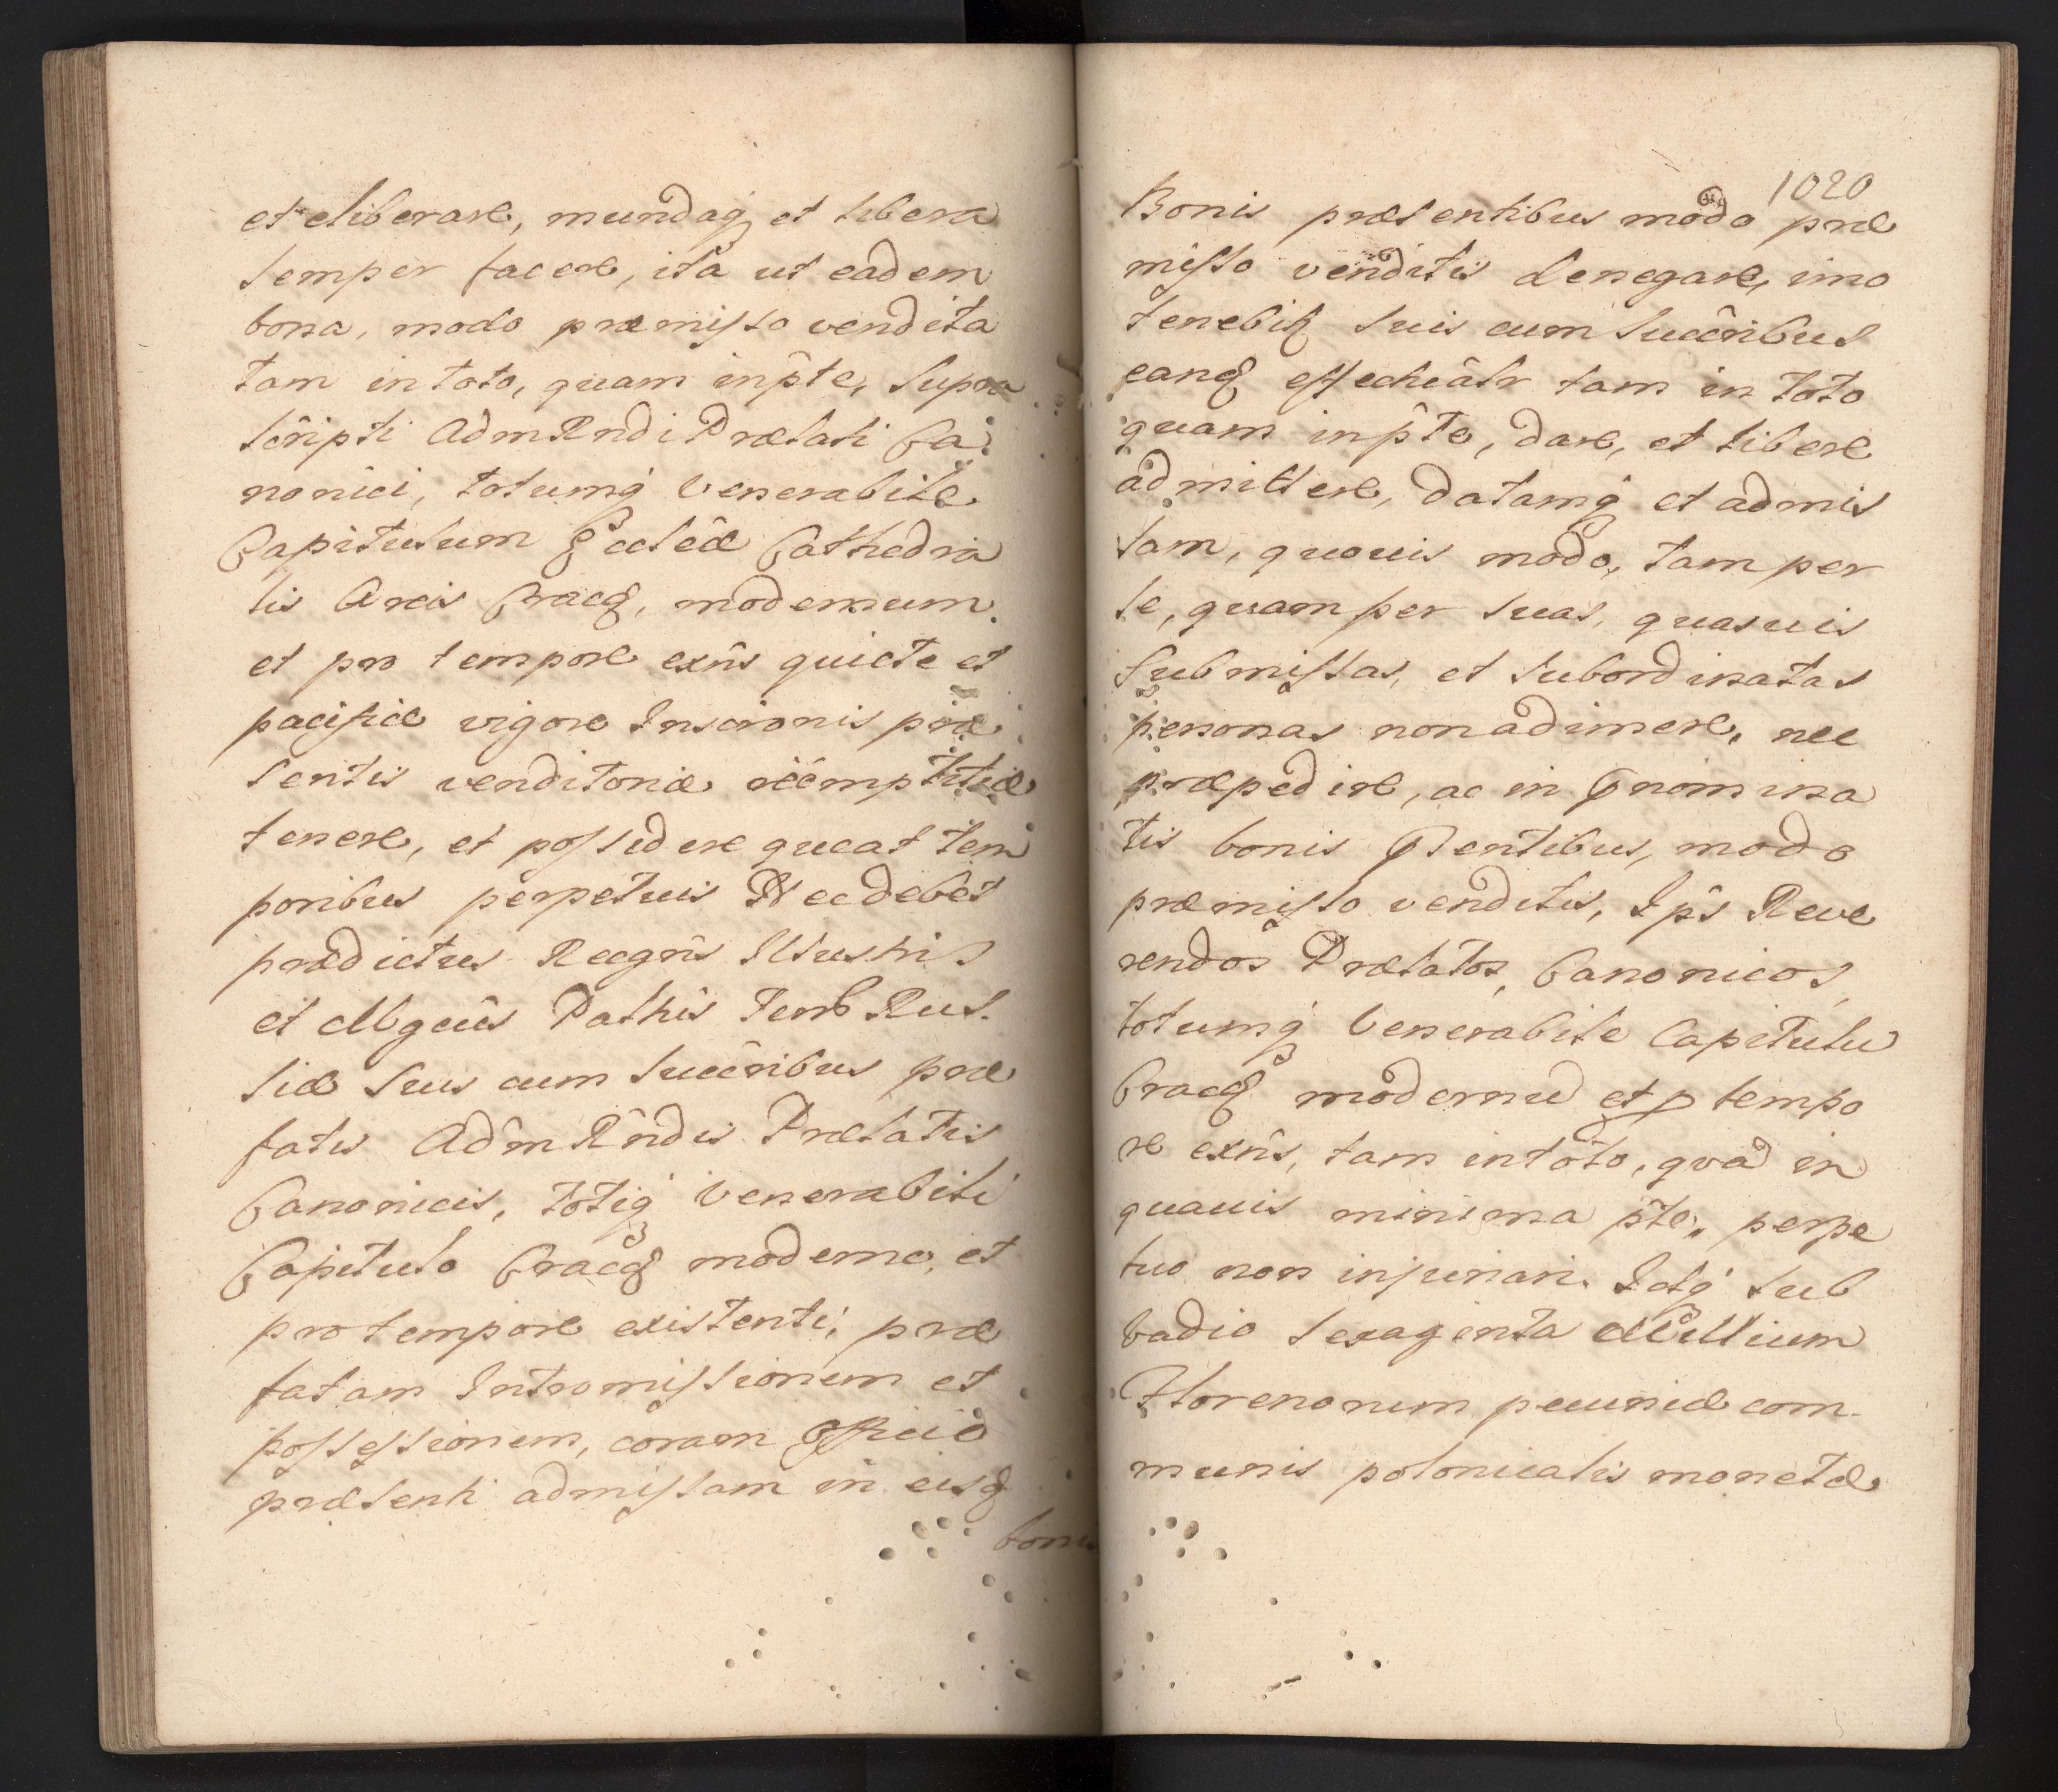 et eliberare, mundaq; et libera
semper facere, ita ut eadem
bona, modo præmisso vendita
tam in toto, quam in pte, supra
scripti Adm Rndi Prælati Ca
nonici, totumq; Venerabile
Capitulum Eccleæ Cathedra
lis Arcis Cracq, modernum
et pro tempore exns quiete et
pacifice vigore Inscronis præ
sentis venditoriæ reemptitiæ
tenere, et possidere queat tem
poribus perpetuis Nec debet
prædictus Recgns Illustris
et Mgcus Pathis Terr Rus
siæ suis cum succribus præ
fatis Adm Rndis Prælatis
Canonicis, totiq; Venerabili
Capitulo Cracq moderno, et
pro tempore existenti, præ
fatam Intromissionem et
possessionem, coram Officio
præsenti admissam in eisq
bonis
1020
Bonis præsentibus modo præ
misso venditis denegare, imo
tenebit suis cum succribus
eanq effectuatr tam in toto
quam in pte, dare, et libere
admittere, datamq; et admis
sam, quovis modo, tam per
se, quam per suas, quasuis
submissas, et subordinatas
personas non adimere, nec
præpedire, ac in prnomina
tis bonis prsentibus, modo
præmisso venditis, Ips Reve
rendos Prælatos, Canonicos,
totumq; Venerabile Capitulu
Cracq modernu et p tempo
re exns, tam in toto, qva in
quauis minima pte, perpe
tuo non injuriari. Idq; sub
vadio sexaginta Millium
Florenorum pecuniæ com
munis polonicalis monetæ